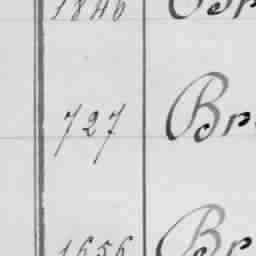 1846 Br
727 Br
1656 Br